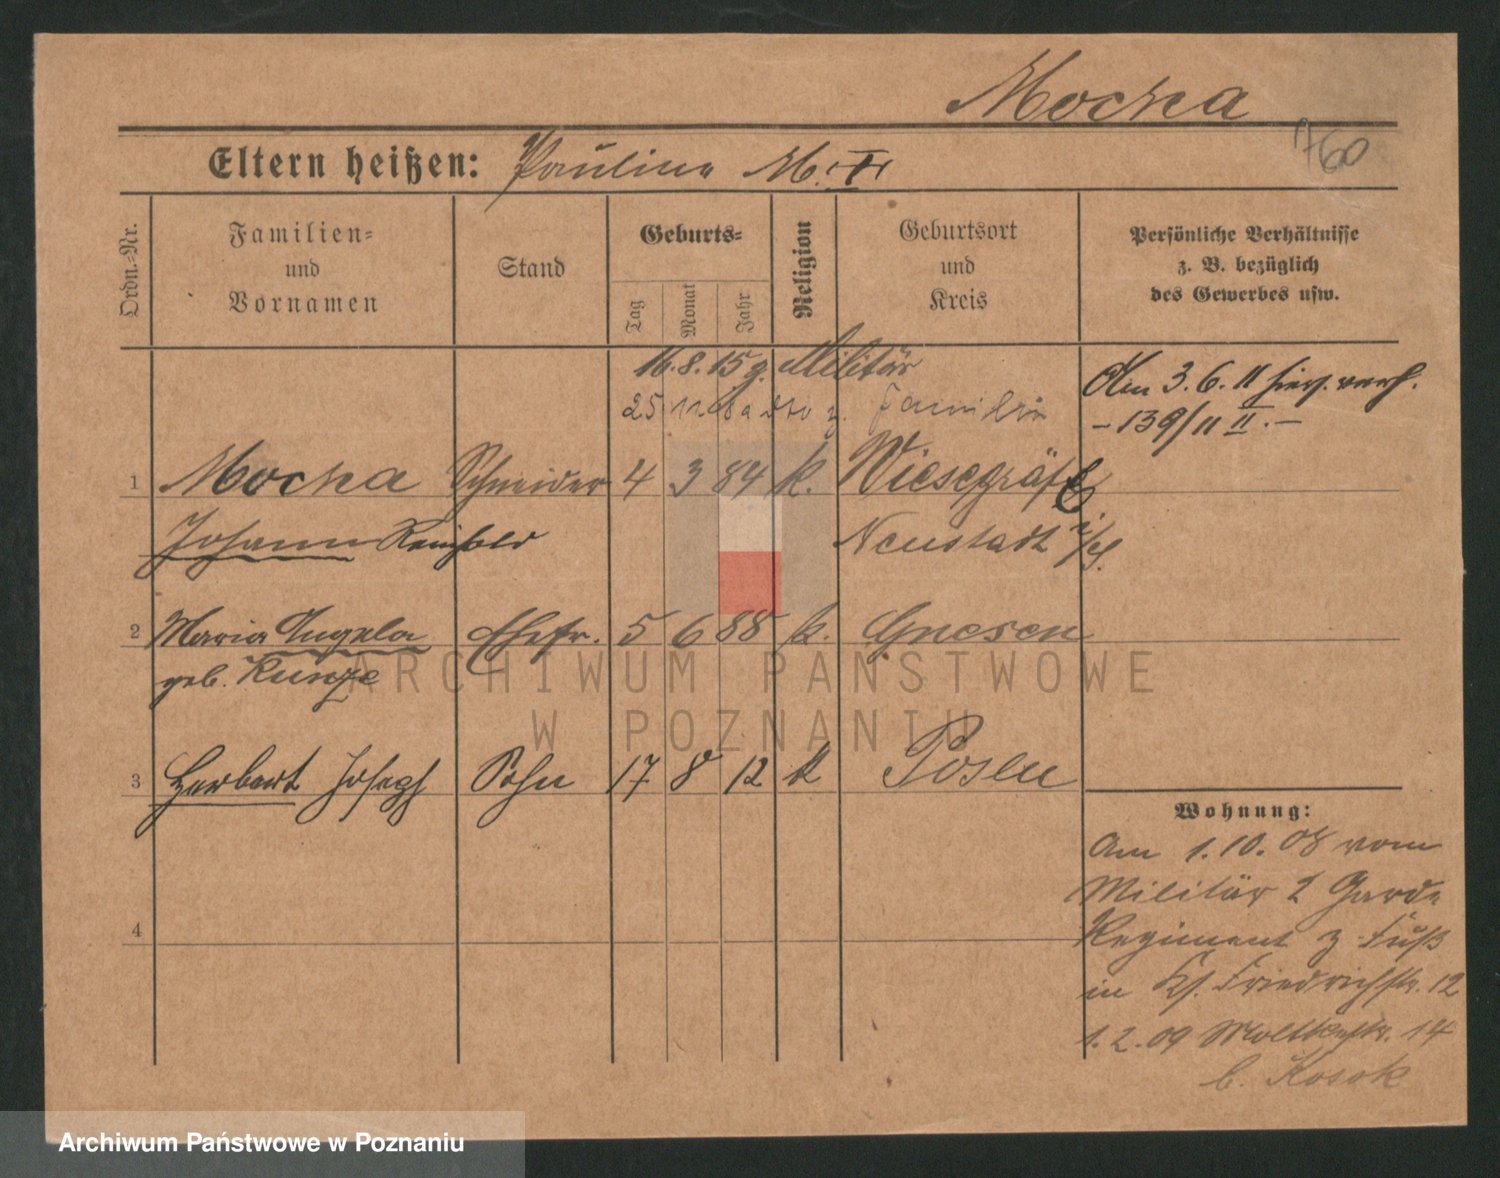 Mocha
760
Eltern heißen: Pauline M.
Ordn.-Nr.
Familien- und Vornamen
Stand
Geburts-
Tag
Monat
Jahr
Religion
Geburtsort und Kreis
Persönliche Verhältnisse
z. B. bezüglich
des Gewerbes usw.
16.8.15 z. Militär
25 Familie
Am 3.6.11 hier verh.
- 139/11 II. -
1 Mocha Schneider 4 3 84 k. Wiesegräfl
Johann Reinhold Neustadt
2 Maria Angela Ehefr. 5 6 88 k. Gnesen
geb. Kunze
3 Herbert Joseph Sohn 17 8 12 k Posen
4
Wohnung:
Am 1.10.08 vom
Militär 2 Garde
Regiment z. Fuß
in Friedrichstr. 12
1.2.09 Moltkestr. 14
b. Kosok
ARCHIWUM PAŃSTWOWE
W POZNANIU
Archiwum Państwowe w Poznaniu